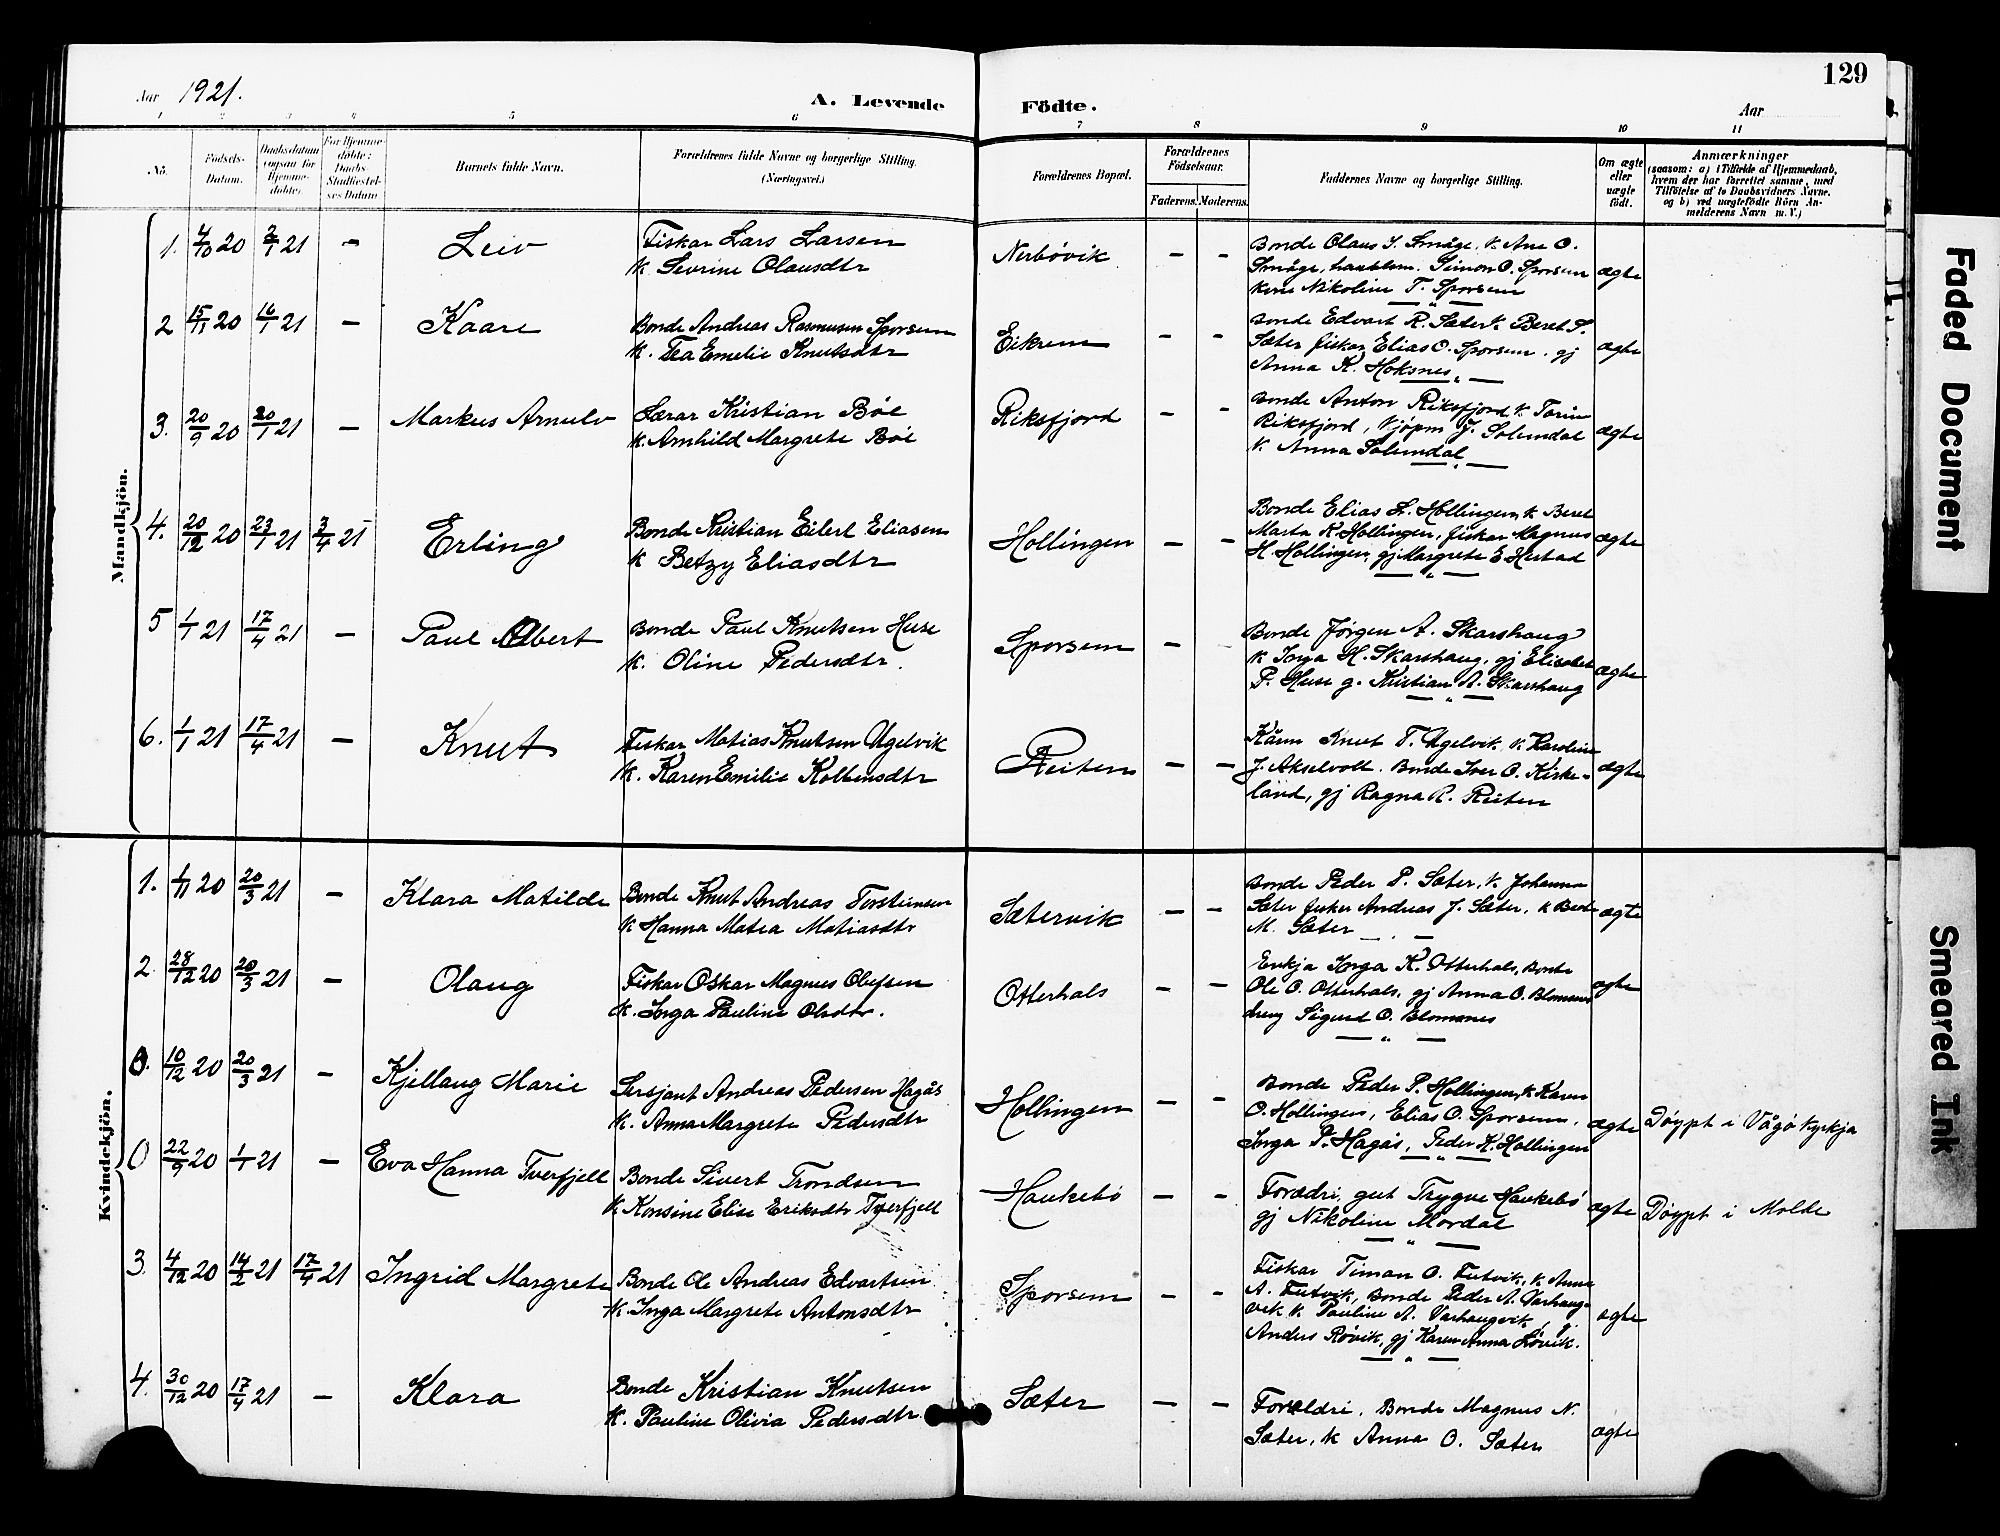 129
Aar 1921.
A. Levende Födte.
Aar
1 2 3 4 5 6 7 8 9 10 11
No.
Födsels-Datum.
Daabsdatum (ogsaa for Hjemmedöbte).
For Hjemmedöbte: Daabs-Stadfæstelses Datum
Barnets fulde Navn.
Forældrenes fulde Navne og borgerlige Stilling. (Næringsvei.)
Forældrenes Bopæl.
Forældrenes Födselsaar.
Faderens. Moderens.
Faddernes Navne og borgerlige Stilling.
Om ægte eller uægte födt.
Anmærkninger
(saasom: a) i Tilfælde af Hjemmedaab,
hvem der har forrettet samme, med
Tilföielse af to Daabsvidners Navne.
og b) ved uægtefödte Börn An-
melderens Navn m. V.)
Mandkjön.
1. 4/10 20 2/1 21 - Leiv
Fiskar Lars Larsen
k. Sevrine Olausdtr
Nerbøvik - -
Bonde Olaus S. Småge, k. Ane O.
Småge, Simon O. Sporsem
Nikoline T. Sporsem
ægte
2 15/11 20 16/1 21 - Kaare
Bonde Andreas Rasmusen Sporsem
k. Tea Emelie Knutsdtr
Eikrem - -
Bonde Edvart R. Sæter k. Beret S.
Sæter fiskar Elias O. Sporsem. gj
Anna K. Hoksnes
ægte
3. 20/9 20 20/1 21 - Markus Arnulv
Lærar Kristian Bøe
k. Arnhild Margrete Bøe
Riksfjord - -
Bonde Anton Riksfjord k. Torine
Riksfjord, kjøpm J. Solemdal
k. Anna Solemdal
ægte
4. 20/12 20 23/1 21 3/4 21 Erling
Bonde Kristian Eilert Eliasen
k Betzy Eliasdtr
Hollingen - -
Bonde Elias H. Hollingen, k Beret
Marta K. Hollingen, fiskar Magnus
H. Hollingen, gj Margrete E Hustad
ægte
5 1/1 21 17/4 21 - Paul Albert
Bonde Paul Knutsen Huse
k. Oline Pedersdtr.
Sporsem -
Bonde Jørgen A. Skarshaug
k Inga H. Skarshaug, gj Elisabet
P. Huse g. Kristian A. Skarshaug
ægte
6. 1/1 21 17/4 21 - Knut
Fiskar Matias Knutsen Ugelvik
k. Karen Emilie Kolbensdtr
Reiten - -
Kårm Knut T. Ugelvik, k Karoline
J. Akselvoll. Bonde Iver O. Kirke-
land, gj Ragna R. Reiten
ægte
Kvindekjön.
1. 1/11 20 20/3 21 - Klara Matilde
Bonde Knut Andreas Torstensen
k Hanna Matea Matiasdtr
Sætervik - -
Bonde Peder P. Sæter, k. Johanna
Sæter fisker Andreas J. Sæter, k
M. Sæter
ægte
2. 28/12 20 20/3 21 - Olaug
Fiskar Oskar Magnus Olufsen
k. Inga Pauline Olsdtr.
Otterhals - -
Enkja Inga K. Otterhals, Bonde
Ole O. Otterhals, gj Anna O. Blomsnes
dreng Sigurd O. Blomsnes
ægte
0. 10/12 20 20/3 21 - Kjellaug Marie
Sersjant Andreas Pedersen Hagås
k. Anna Margrete Pedersdtr
Hollingen - -
Bonde Peder P. Hollingen, k Karen
O. Hollingen, Elias O. Sporsem,
Inga P. Hagås, Peder K. Hollingen
ægte
Døypt i Vågø kyrkja
0 22/9 20 1/1 21 - Eva Hanna Tverfjell
Bonde Sivert Trondsen
k. Konsine Elise Eriksdtr Tverfjell
Haukebø - -
Forædri, gut Trygve Haukebø
gj Nikoline Mordal
ægte
Døypt i Molde
3. 4/12 20 14/2 21 17/4 21 Ingrid Margrete
Bonde Ole Andreas Edvartsen
k. Inga Margrete Antonsdtr
Sporsem - -
Fiskar Timan O. Futvik, k Anna
A. Futvik, Bonde Peder A. Varhaug-
vik k. Pauline A. Varhaugvik, g.
Anders Røvik, gj Karen Anna Løvik.
ægte
4. 30/12 20 17/4 21 - Klara
Bonde Kristian Knutsen
k. Pauline Olivia Pedersdtr
Sæter - -
Forældri, Bonde Magnus N.
Sæter, k Anna O. Sæter
ægte
Faded Document
Smeared Ink